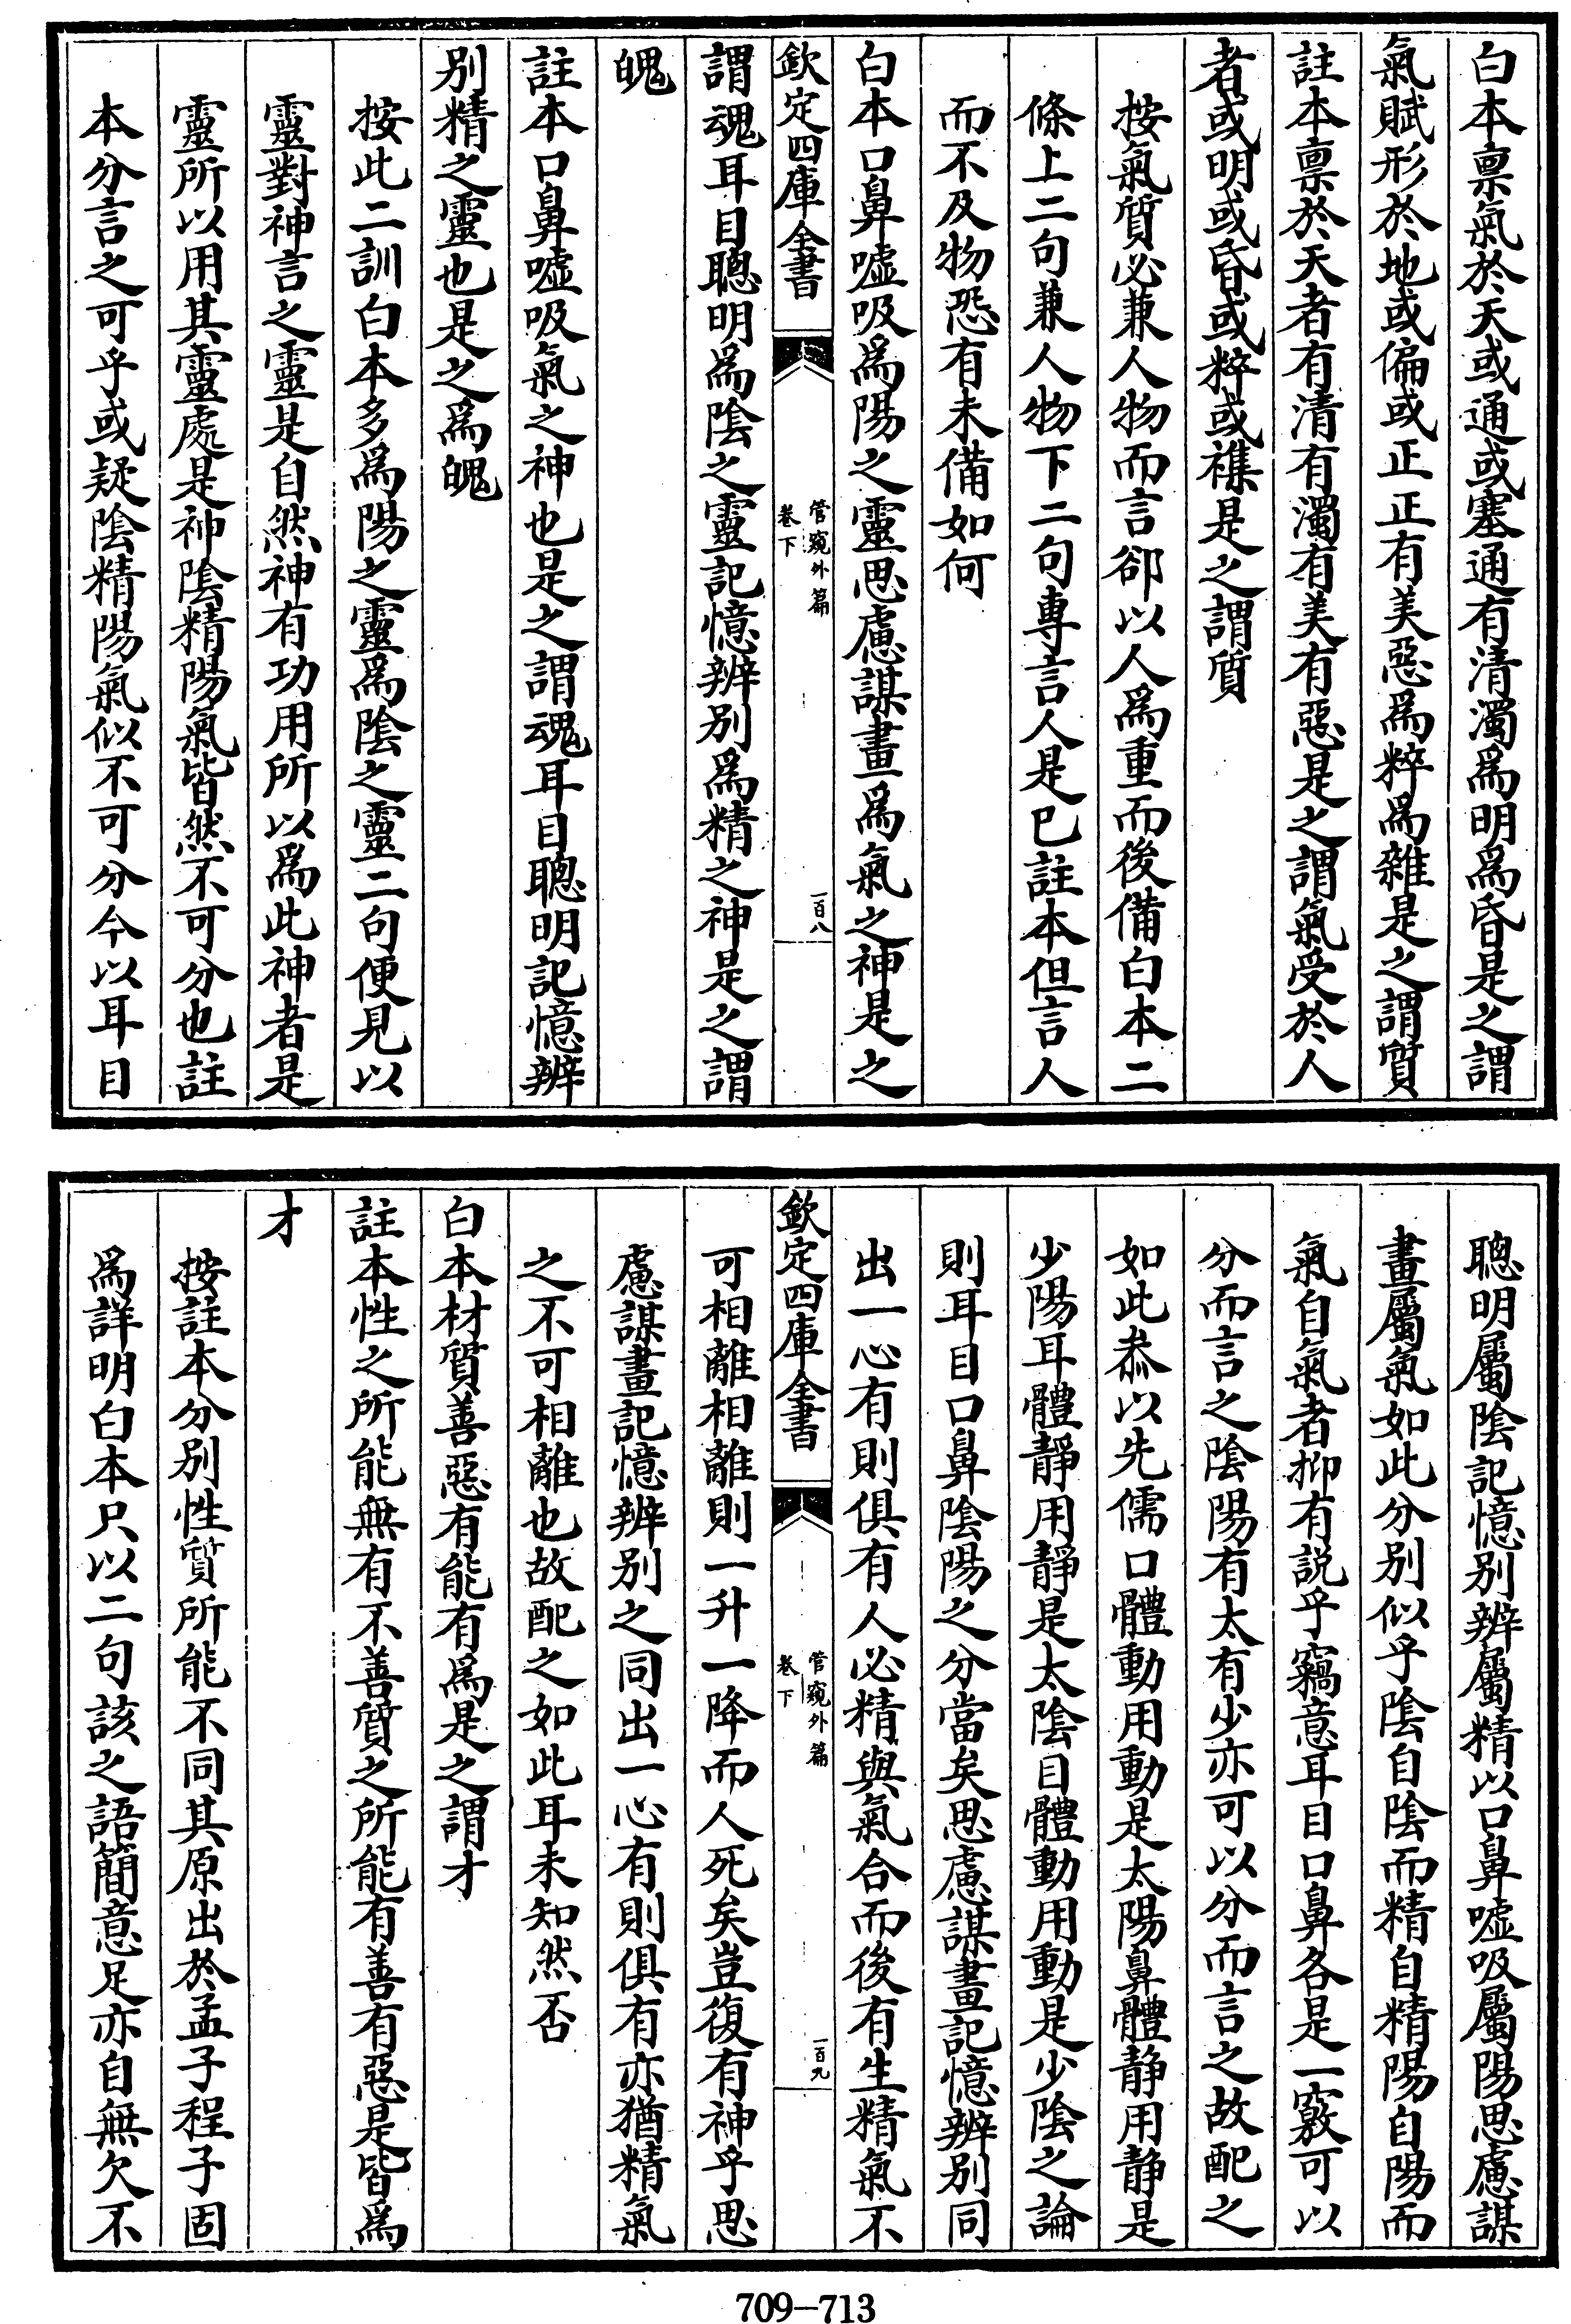 白本禀氣於天或通或塞通有清濁為明為昏是之謂
氣賦形於地或偏或正正有美惡為粹為雜是之謂質
註本禀於天者有清有濁有美有惡是之謂氣受於人
者或明或昏或粹或襍是之謂質
按氣質必兼人物而言卻以人為重而後備白本二
條上二句兼人物下二句專言人是已註本但言人
而不及物恐有未備如何
白本口鼻噓吸為陽之靈思慮謀畫為氣之神是之
欽定四庫全書
管窺外篇
卷下
一百八
謂魂耳目聰明為陰之靈記憶辨别為精之神是之謂
魄
註本口鼻噓吸氣之神也是之謂魂耳目聰明記憶辨
别精之靈也是之為魄
按此二訓白本多為陽之靈為陰之靈二句便見以
靈對神言之靈是自然神有功用所以為此神者是
靈所以用其靈處是神陰精陽氣皆然不可分也註
本分言之可乎或疑陰精陽氣似不可分今以耳目
聰明屬陰記憶别辨屬精以口鼻噓吸屬陽思慮謀
畫屬氣如此分别似乎陰自陰而精自精陽自陽而
氣自氣者抑有説乎竊意耳目口鼻各是一竅可以
分而言之陰陽有太有少亦可以分而言之故配之
如此叅以先儒口體動用動是太陽鼻體静用静是
少陽耳體靜用靜是太陰目體動用動是少陰之論
則耳目口鼻陰陽之分當矣思慮謀畫記憶辨别同
出一心有則俱有人必精與氣合而後有生精氣不
欽定四庫全書
管窺外篇
卷下
一百九
可相離相離則一升一降而人死矣豈復有神乎思
慮謀畫記憶辨别之同出一心有則俱有亦猶精氣
之不可相離也故配之如此耳未知然否
白本材質善惡有能有為是之謂才
註本性之所能無有不善質之所能有善有惡是皆為
才
按註本分别性質所能不同其原出於孟子程子固
為詳明白本只以二句該之語簡意足亦自無欠不
709—713